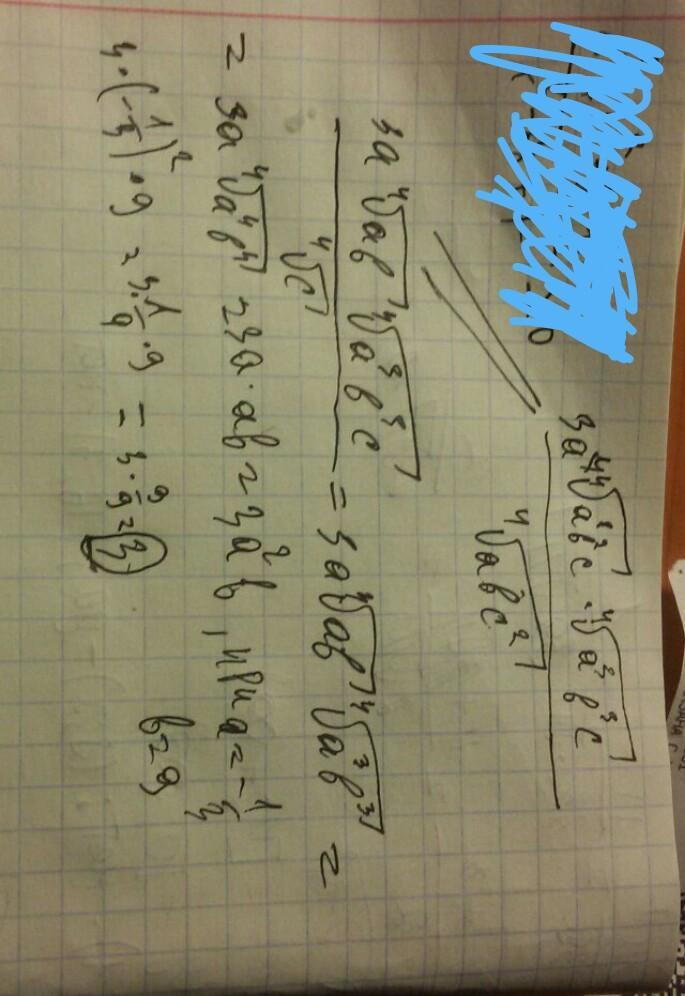 3a ⁴√(a²b²c) · ⁴√(a³b³c)
⁴√(abc²)
3a ⁴√(ab) ⁴√(a³b³c) / ⁴√c = 3a ⁴√(ab) ⁴√(a³b³) =
= 3a ⁴√(a⁴b⁴) = 3a·ab = 3a²b, при a = -1/3
b = 9
3·(-1/3)²·9 = 3·1/9·9 = 3·9/9 = 3